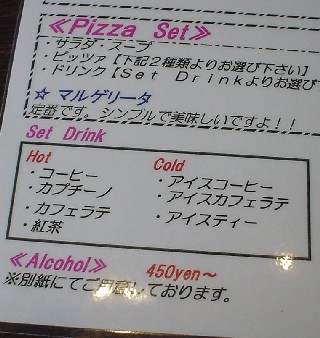 ≪Pizza Set≫
・サラダ・スープ
・ピッツァ【下記２種類よりお選び下さい】
・ドリンク【Set Drinkよりお選び
☆ マルゲリータ
定番です。シンプルで美味しいですよ！！
Set Drink
Hot
・コーヒー
・カプチーノ
・カフェラテ
・紅茶
Cold
・アイスコーヒー
・アイスカフェラテ
・アイスティー
≪Alcohol≫ 450yen～
※別紙にてご用意しております。